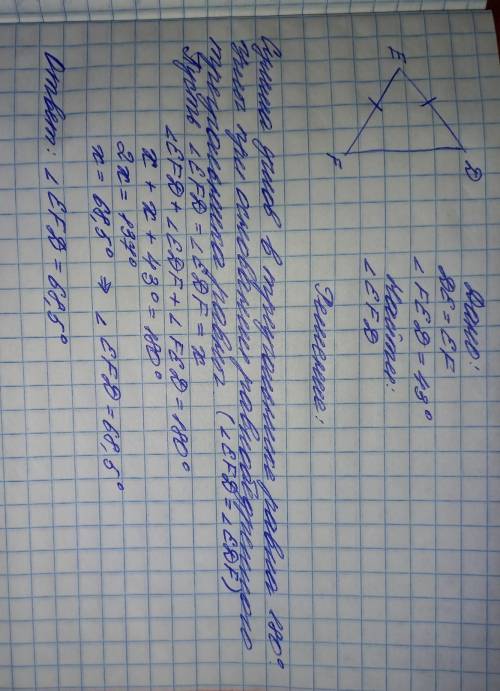 E
D
F
Дано:
DE = EF
∠FED = 43°
Найти:
∠EFD
Решение:
Сумма углов в треугольнике равна 180°.
Углы при основании равнобедренного
треугольника равны (∠EFD = ∠EDF)
Пусть ∠EFD = ∠EDF = x
∠EFD + ∠EDF + ∠FED = 180°
x + x + 43° = 180°
2x = 137°
x = 68,5° ⇒ ∠EFD = 68,5°
Ответ: ∠EFD = 68,5°